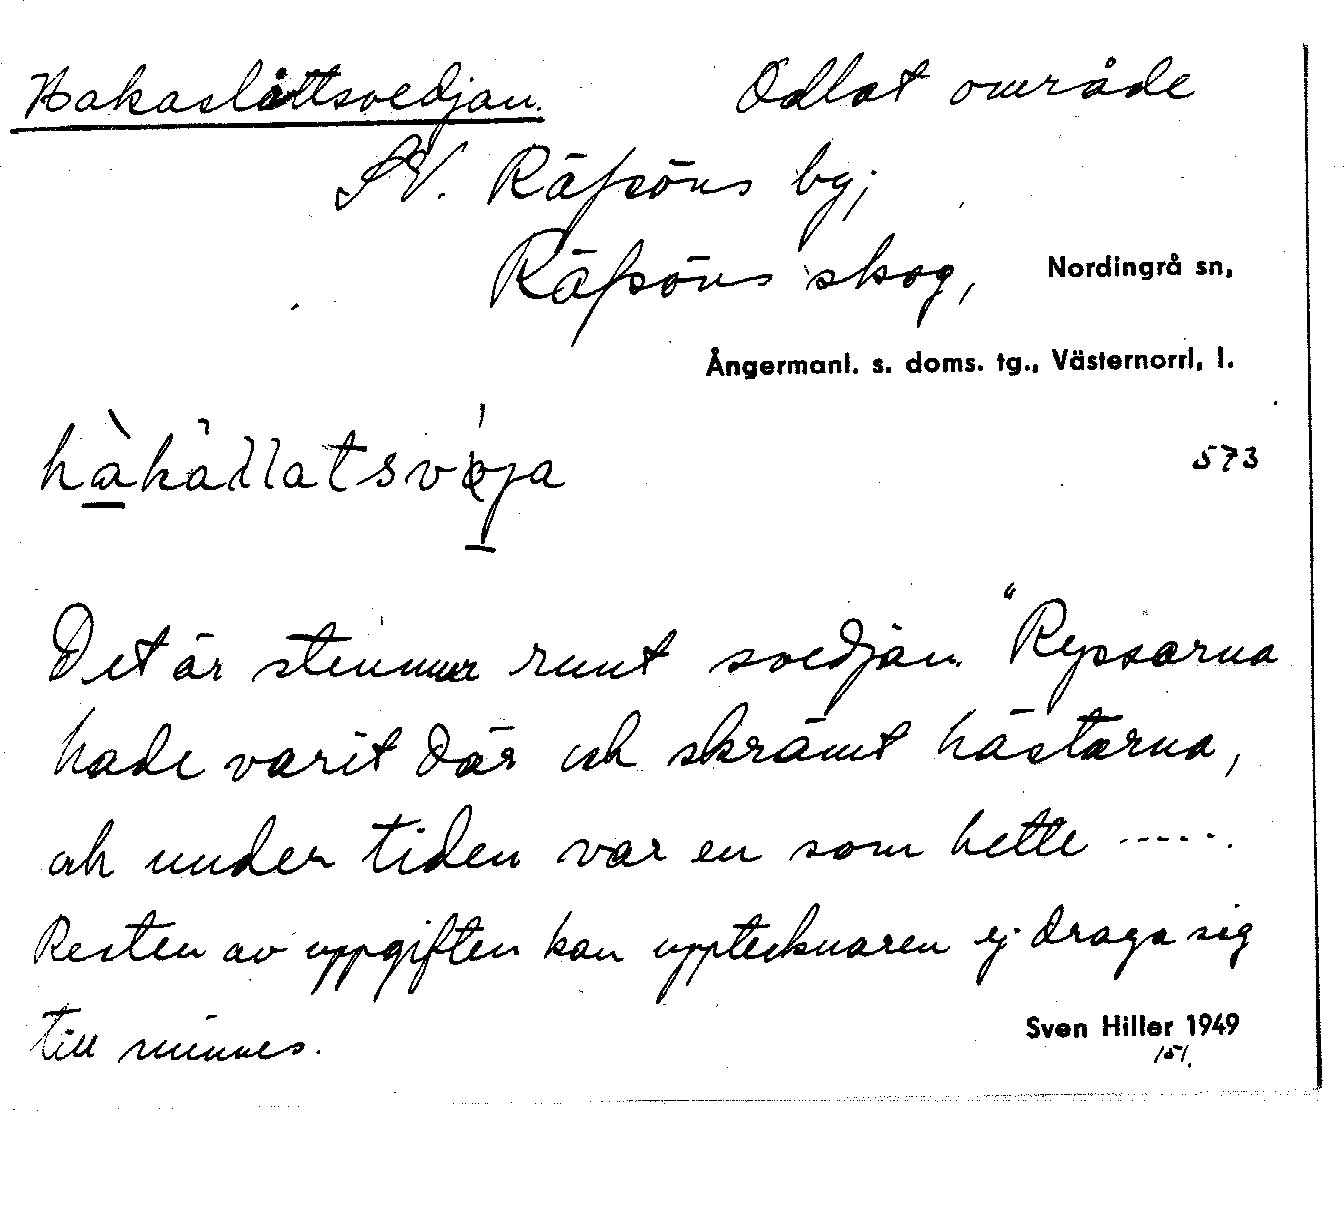 Hakaslåttsvedjan. Odlat område
SV. Räfsöns by;
Räfsöns skog, Nordingrå sn,
Ångermanl. s. doms. tg., Västernorrl. l.
573
Det är stenmur runt svedjan. "Ryssarna
hade varit där och skrämt hästarna,
och under tiden var en som hette -----.
Resten av uppgiften kan upptecknaren ej draga sig
till minnes.
Sven Hiller 1949
151.